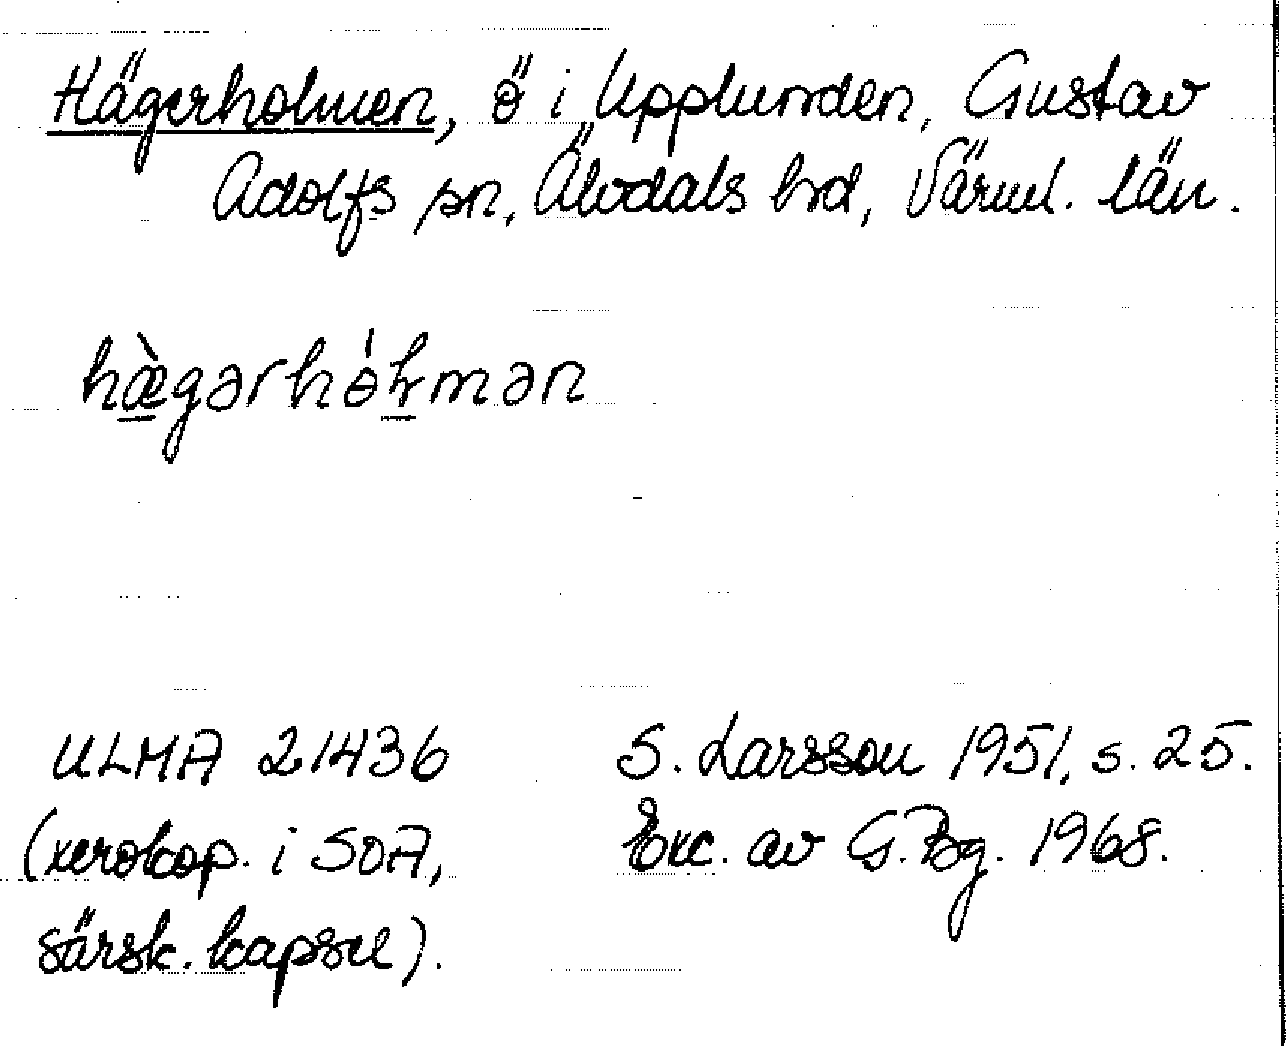 Hägerholmen, ö i Upplunden, Gustav
Adolfs sn, Älvdals hd, Värml. län.
hæ̀gərhɵ́ɫmən
ULMA 21436
(xerokop. i SOA,
särsk. kapsel).
S. Larsson 1951, s. 25.
Exc. av G. Bg. 1968.